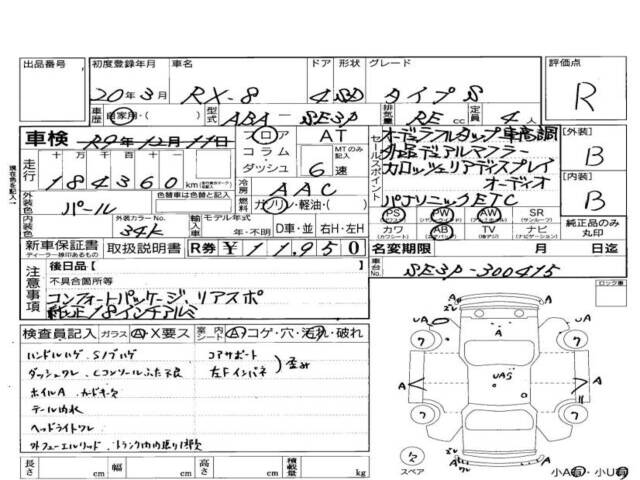 出品番号 初度登録年月 車名 ドア 形状 グレード 評価点
20年3月 RX-8 4 SD タイプS R
車歴 自家用・( ) 型式 ABA-SE3P 排気量 RE cc 定員 4人
車検 R9年12月11日 フロア AT オーディラフルタップ車高調 【外装】
走行 十万 万 千 百 十 コラム MTのみ記入 セールスポイント 外品デュアルマフラー B
184360 km ダッシュ 6速 カロッツェリアディスプレイオーディオ 【内装】
現在色を記入 外装色 パール 色替車は色替と記入 冷房 AAC B
燃料 ガソリン・軽油・( ) パナソニックETC
内装色 外装カラーNo. 34K 輸入車 モデル年式 年・不明 D車・並 右H・左H
PS PW AW SR (サンルーフ) 純正品のみ丸印
カワ (カワシート) AB TV ナビ (ナビゲーション)
新車保証書 取扱説明書 R券 ¥11,950 名変期限 月 日迄
ディーラー捺印あるもの
注意事項 後日品【 】 車台No. SE3P-300415
不具合箇所等 ロック車
コンフォートパッケージ、リアスポ
純正18インチアルミ
検査員記入 ガラス A・X要ス 室内シート A コゲ・穴・汚れ・破れ
ハンドルハゲ、Sノブハゲ コアサポート
ダッシュワレ、Cコンソールふた不良 左Fインパネ 歪み
ホイルA
テール内水
ヘッドライトワレ
外フューエルリッド、トランク内
長さ cm 幅 cm 高さ cm 積載量 kg
UA A
A UAS A
スペア 小A有・小U有